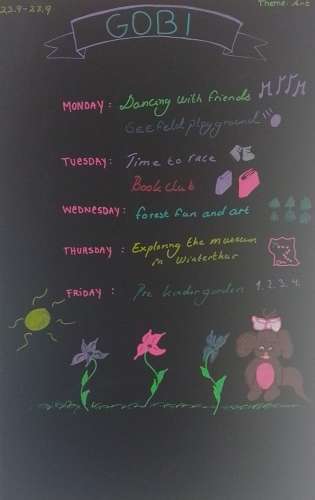 23.9-27.9
Theme: Art
GOBI
MONDAY: Dancing with friends
Geefeld playground
TUESDAY: Time to race
Book club
WEDNESDAY: forest fun and art
THURSDAY: Exploring the museum
in Winterthur
FRIDAY: Pre kindergarden 1.2.3.4.